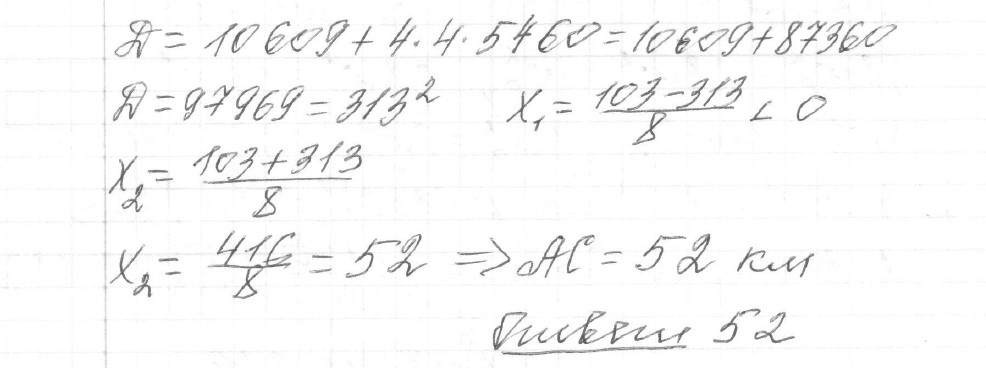 Д = 10609 + 4·4·5460 = 10609 + 87360
Д = 97969 = 313² X₁ = (103 − 313)/8 < 0
X₂ = (103 + 313)/8
X₂ = 416/8 = 52 => AC = 52 км
Ответ 52